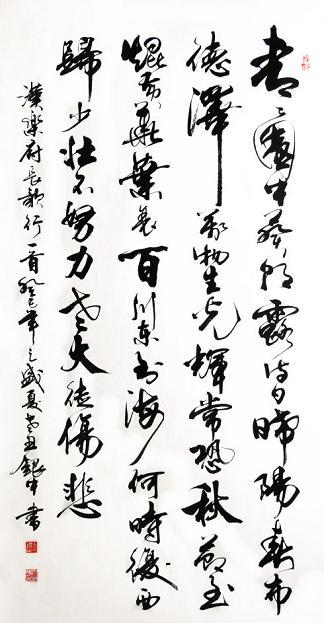 青青園中葵朝露待日晞陽春布
德澤萬物生光輝常恐秋節至
焜黄華葉衰百川東到海何時復西
歸少壮不努力老大徒傷悲
漢樂府長歌行一首癸巳年之盛夏銀中書